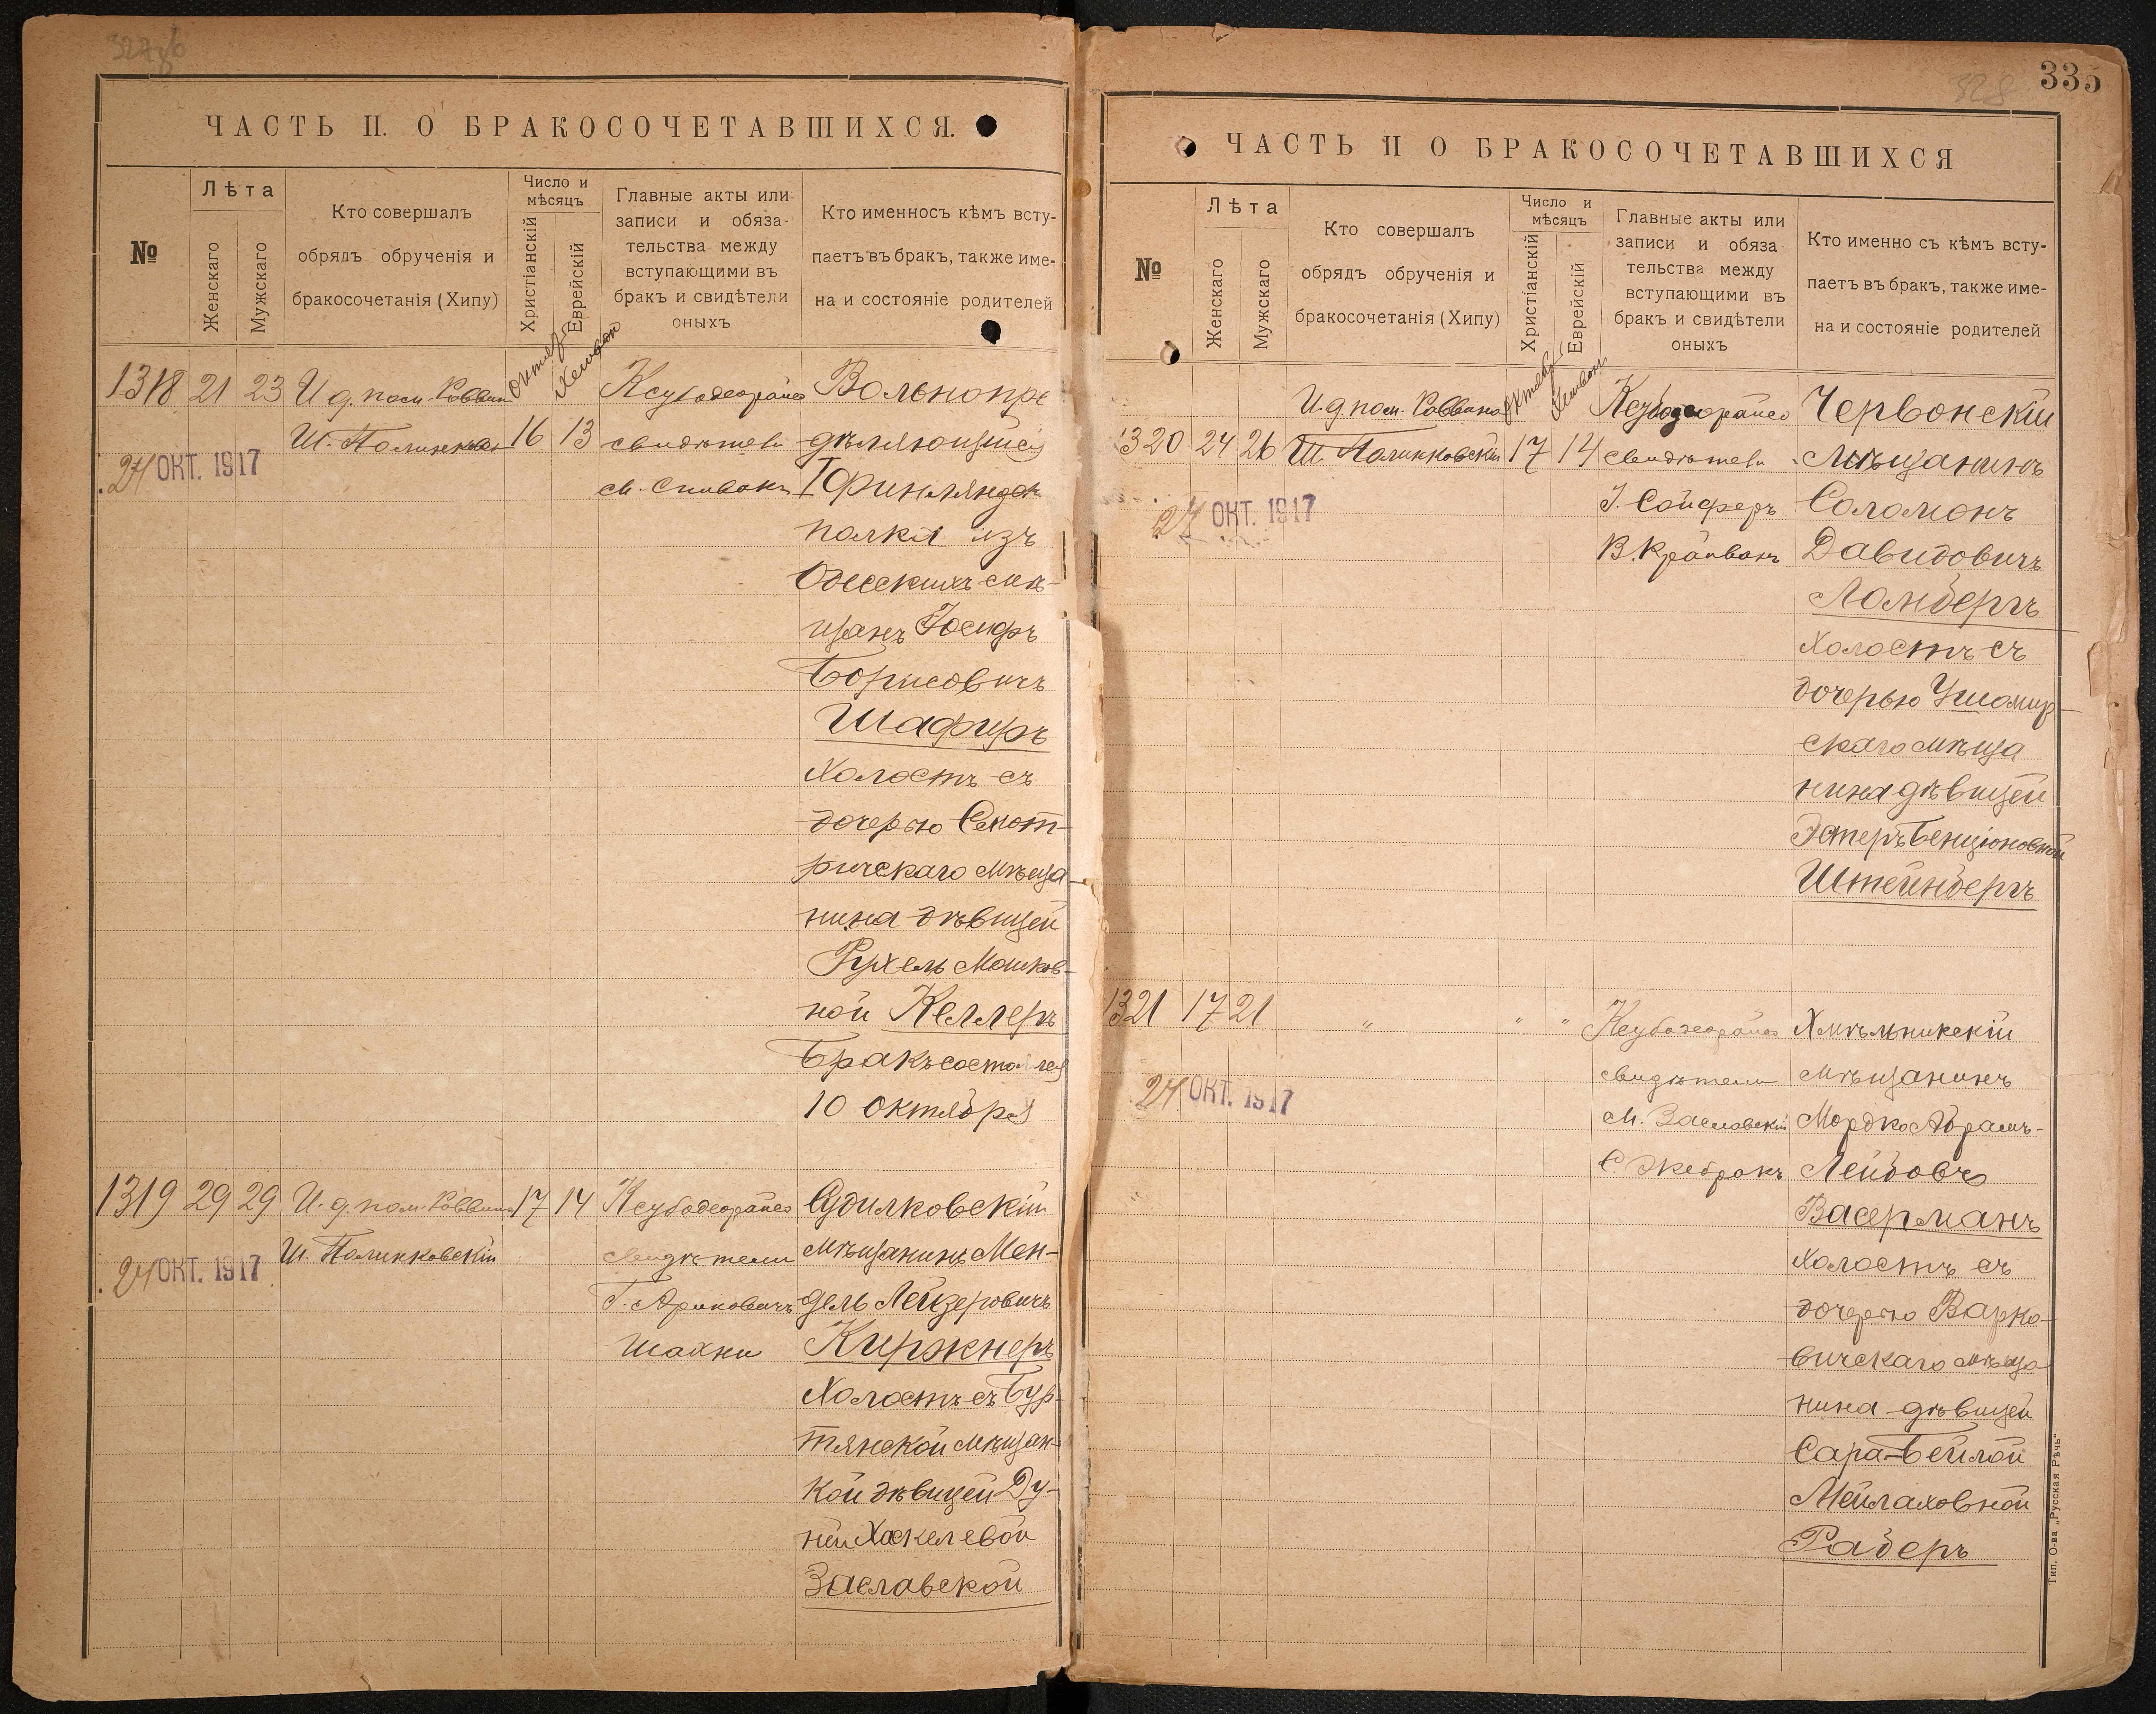 ЧАСТЬ II. О БРАКОСОЧЕТАВШИХСЯ.
№
Лѣта
Женскаго
Мужскаго
Кто совершалъ
обрядъ обрученія и
бракосочетанія (Хипу)
Число и
мѣсяцъ
Христіанскій
Еврейскій
Главные акты или
записи и обяза-
тельства между
вступающими въ
бракъ и свидѣтели
оныхъ
Кто именносъ кѣмъ всту-
паетъ въ бракъ, также име-
на и состояніе родителей
1318 21 23
И д. пом. Раввин
Ш. Полинков
16 13
свидѣтели
М. Спивакъ
24 ОКТ. 1917
Вольнопре
дѣляющійся
I Финляндск
полка изъ
Одесскихъ мѣ-
щанъ Іосифъ
Борисовичъ
Шафиръ
Холостъ съ
дочерью Смот-
ричскаго мѣща-
нина дѣвицей
Рухель Мошков-
ной Келлеръ
Бракъ состоялся
10 октября
1319 29 29
И. д. пом. Раввина
Ш. Полинковскій
17 14
свидѣтели
Г. Ариковичъ
Шахни
24 ОКТ. 1917
Судилковскій
мѣщанинъ Мен-
дель Лейзеровичъ
Киржнеръ
Холостъ съ Бур-
тянской мѣщан-
кой дѣвицей Ду-
ней Хаскелевой
Заславской
335
328
ЧАСТЬ II О БРАКОСОЧЕТАВШИХСЯ
№
Лѣта
Женскаго
Мужскаго
Кто совершалъ
обрядъ обрученія и
бракосочетанія (Хипу)
Число и
мѣсяцъ
Христіанскій
Еврейскій
Главные акты или
записи и обяза
тельства между
вступающими въ
бракъ и свидѣтели
оныхъ
Кто именно съ кѣмъ всту-
паетъ въ бракъ, также име-
на и состояніе родителей
И. д. пом. Раввина
1320 24 26
Ш. Полинковскій
17 14
свидѣтели
І. Сойферъ
В. Крайванъ
24 ОКТ. 1917
Червонскій
мѣщанинъ
Соломонъ
Давидовичъ
Ломбергъ
Холостъ съ
дочерью Ушомир-
скаго мѣща
нина дѣвицей
Эстеръ Бенціоновной
Штейнбергъ
1321 17 21
" " "
свидѣтели
М. Заславскій
24 ОКТ. 1917
Хмѣльникскій
мѣщанинъ
Мордко Абрамъ-
Лейбовъ
Васерманъ
Холостъ съ
дочерью Варко-
вичскаго мѣща
нина дѣвицей
Сара-Бейлой
Мейлаховной
Радеръ
Тип. О-ва „Русская Рѣчь"